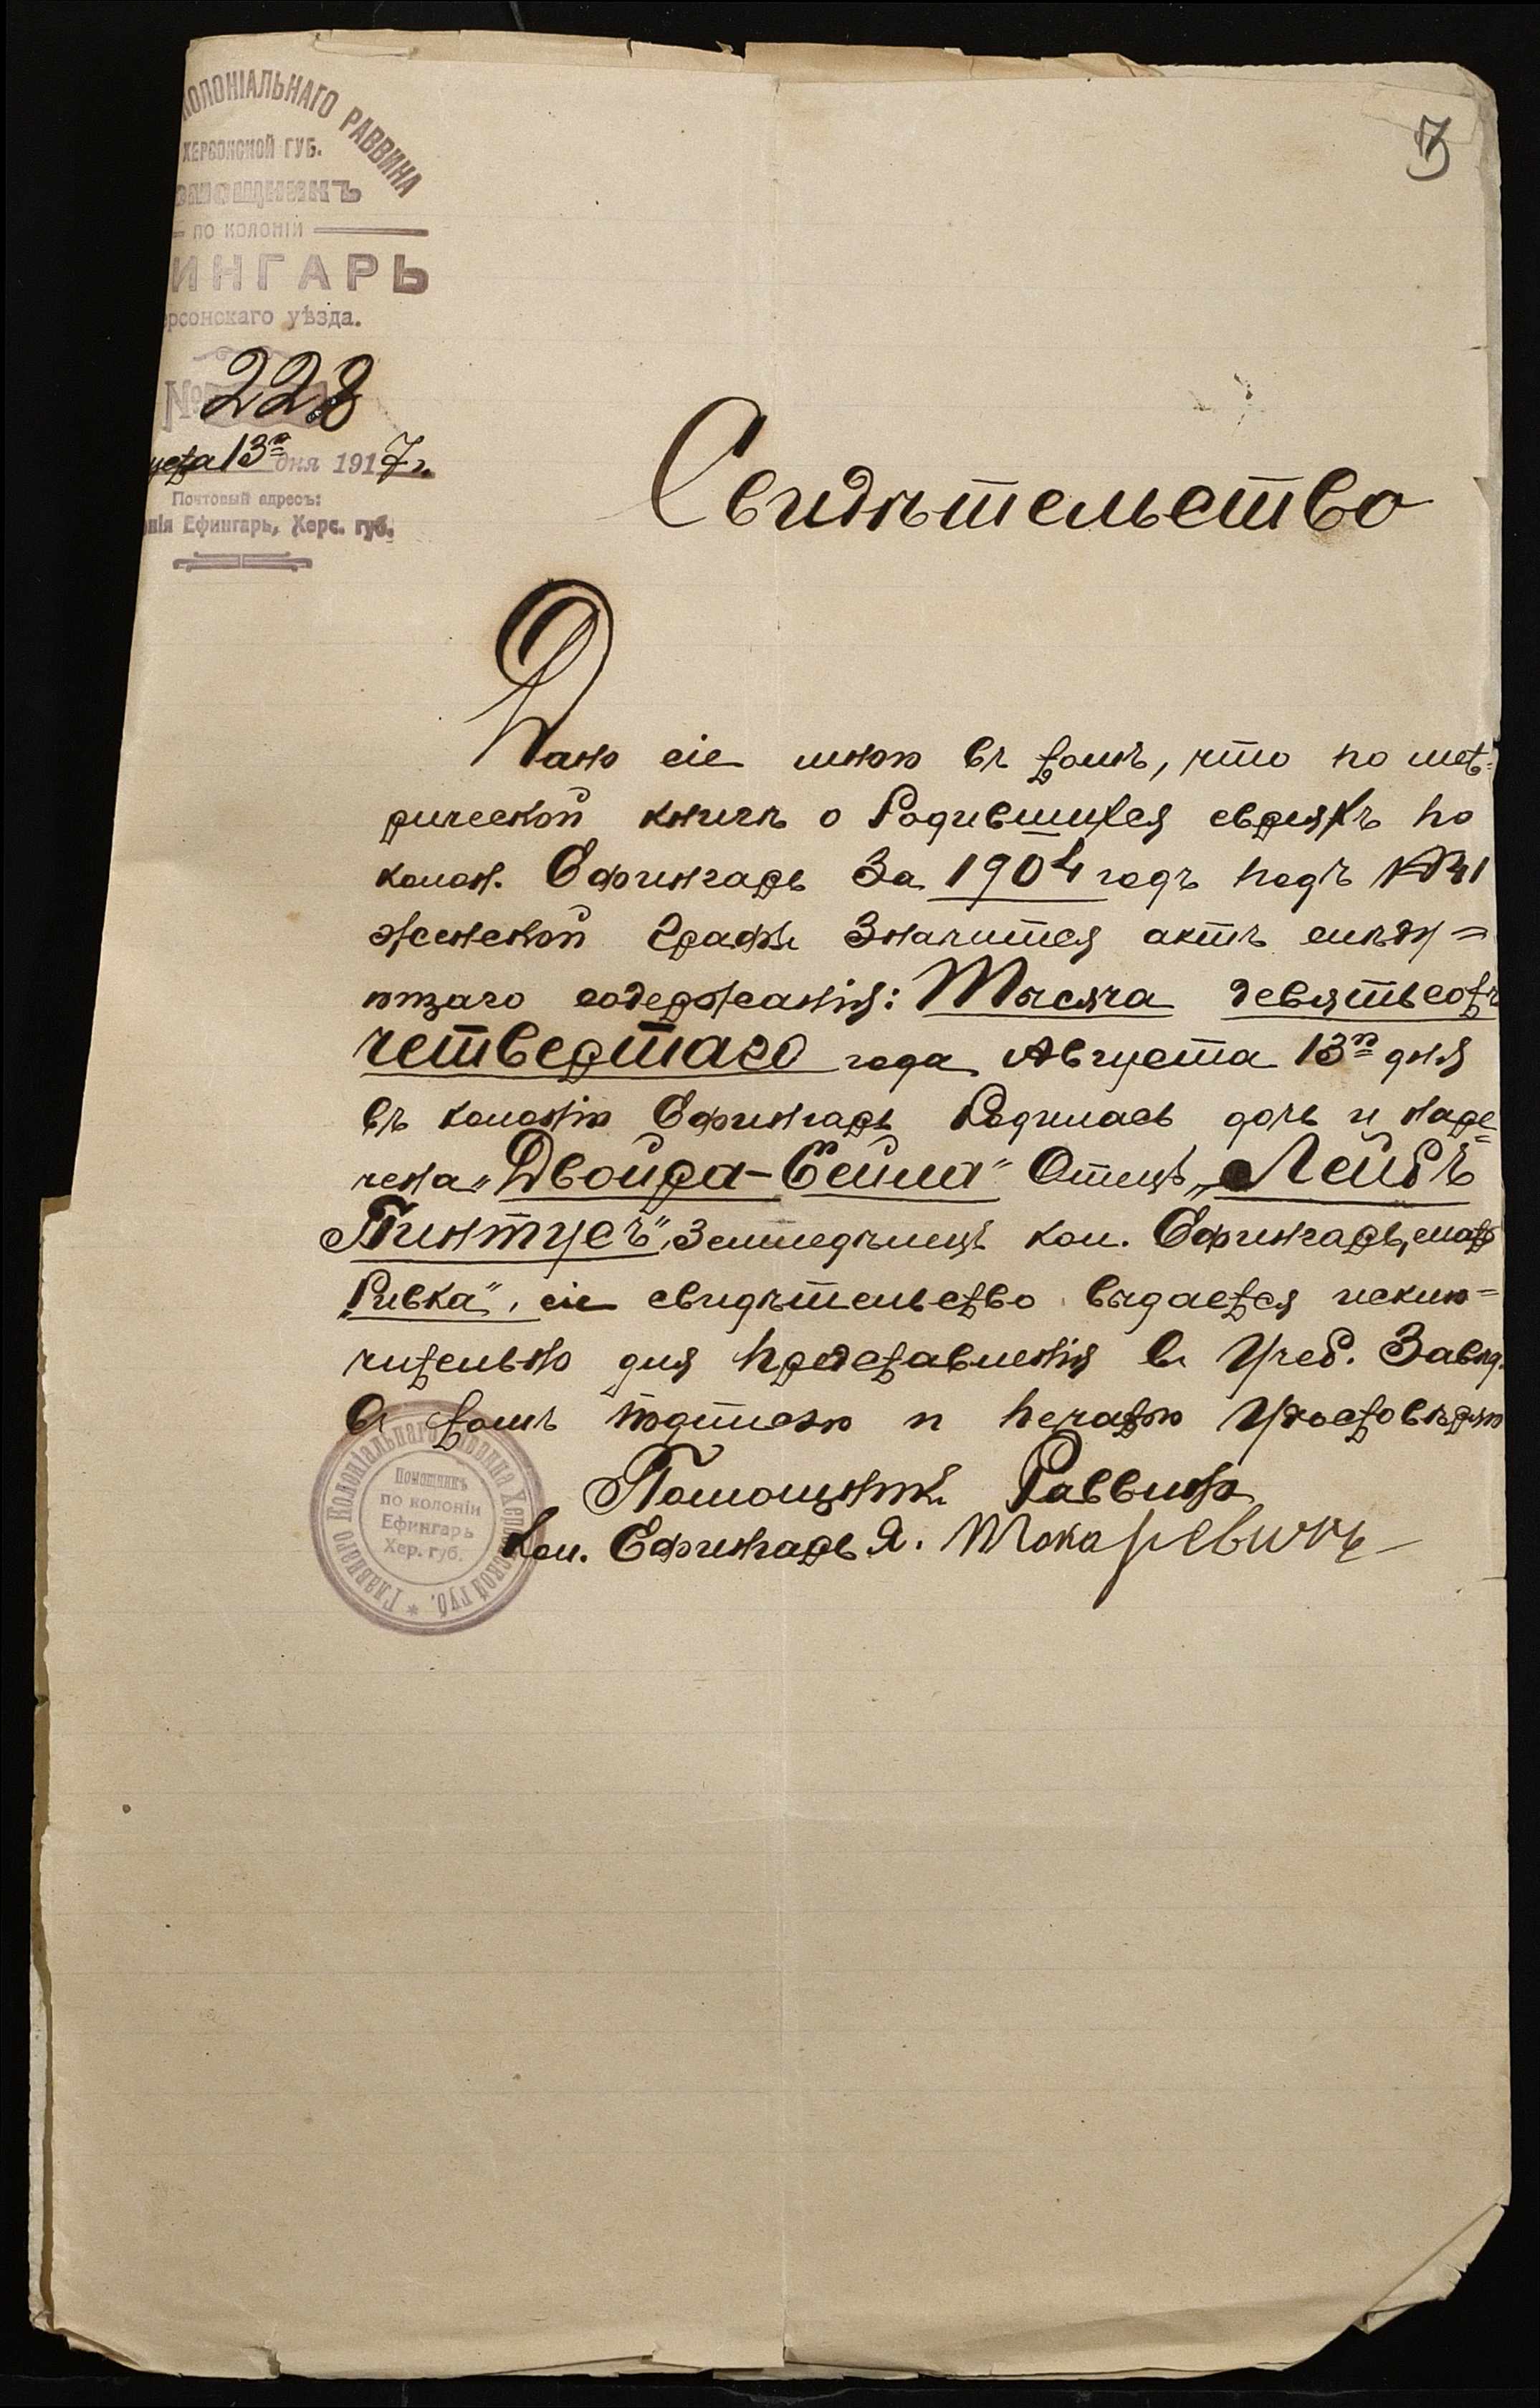 КОЛОНІАЛЬНАГО РАВВИНА
ХЕРСОНСКОЙ ГУБ.
ПОМОЩНИКЪ
ПО КОЛОНІИ
ИНГАРЬ
ерсонскаго уѣзда.
№ 228
уста 13го дня 1917 г.
Почтовый адресъ:
нія Ефингарь, Херс. губ.
3
Свидѣтельство
Дано сіе мною въ томъ, что по мет-
рической книгѣ о Родившихся евреяхъ по
колон. Ефингарь За 1904 годъ подъ №41
женской Графы Значится актъ слѣду=
ющаго содержанія: Тысяча девятьсотъ
четвертаго года Августа 13го дня
въ колоніи Ефингарь Родилась дочь и наре=
чена „Двойра-Бейла" Отецъ „Лейбъ
Пинтусъ", Земледѣлецъ кол. Ефингарь, мать
„Ривка", сіе свидѣтельство выдается исклю=
чительно для представленія въ Учеб. Завед.
въ томъ подписью и печатью Удостовѣряю
Помощникъ Раввина
Кол. Ефингарь Я. Токаревичъ
Главнаго Колоніальнаго Раввина Херсонской губ.
Помощникъ
по колоніи
Ефингарь
Хер. губ.